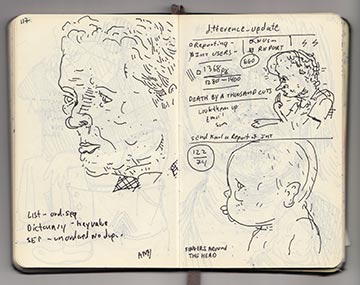 117.
List - ord. seq
Dictionary - key value
SET - unordered No dup..
AMJ
difference_update
Reporting -
INT USERS -
REPORT
660
1368
1230 - 1400
DEATH BY A THOUSAND CUTS
Look them up
Email
Send Karl a Report of INT
122
24
FINGERS AROUND
THE HEAD